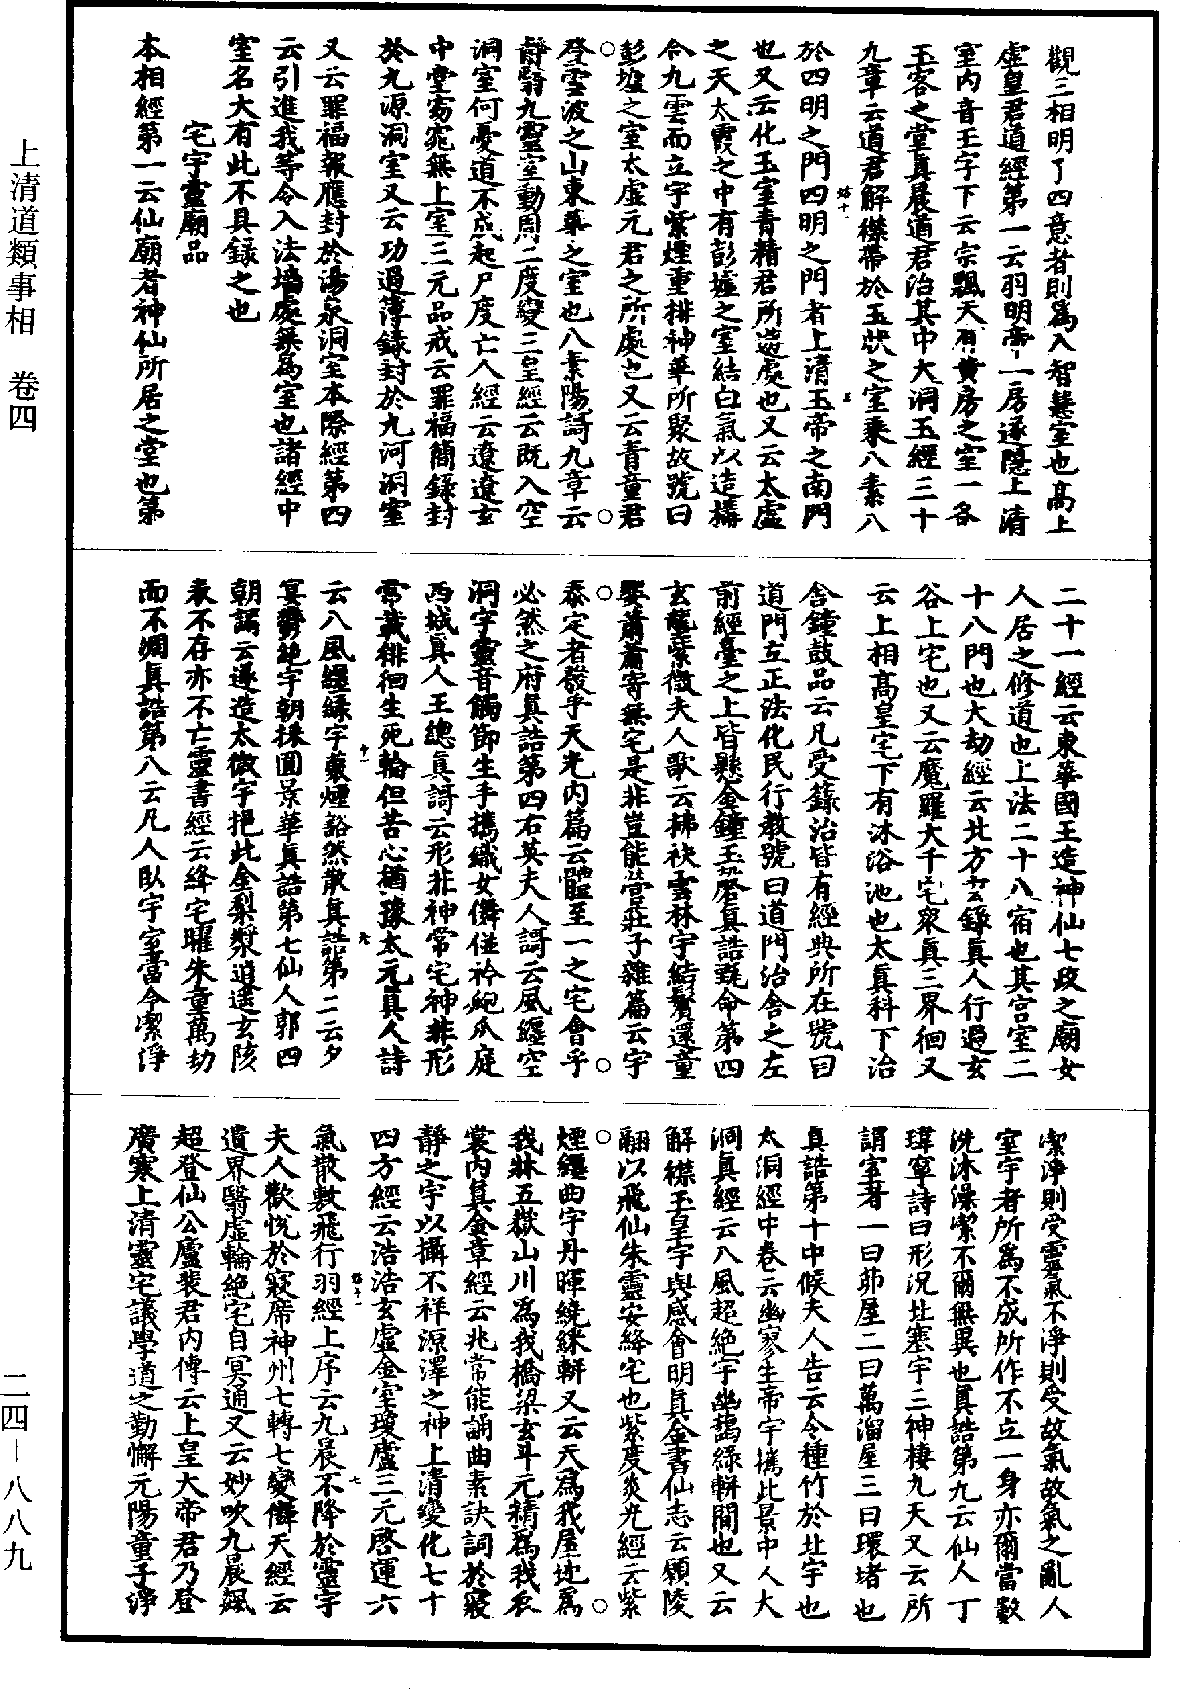 上清道類事相　卷四
觀三相明了四意者則爲入智慧室也高上
虛皇君道經第一云羽明帝一房遂隱上清
室內音玉字下云宗飄天有黄房之室一各
玉客之堂眞晨道君治其中大洞玉經三十
九章云道君解襟帶於玉狀之室乘八素八
於四明之門四明之門者上清玉帝之南門
也又云化玉室青精君所遊處也又云太虛
之天太霞之中有彭墟之室結白氣以造構
合九雲而立宇紫煙重排神華所聚故號曰
彭墟之室太虛元君之所處也又云青童君
登雲波之山東華之室也八素陽謌九章云
靜翳九靈室動周二度變三皇經云既入空
洞室何憂道不成起尸度亡人經云遼遼玄
中堂窈窕無上室三元品戒云罪福簡錄封
於九源洞室又云功過簿錄封於九河洞室
又云罪福報應封於湯泉洞室本際經第四
云引進我等令入法墻處無爲室也諸經中
室名大有此不具錄之也
宅宇靈廟品
本相經第一云仙廟者神仙所居之堂也第
二十一經云東華國王造神仙七政之廟女
人居之修道也上法二十八宿也其宫室二
十八門也大劫經云北方玄錄眞人行過玄
谷上宅也又云魔羅大千宅衆眞三界徊又
云上相高皇宅下有沐浴池也太眞科下治
舍鐘鼓品云凡受籙治皆有經典所在號曰
道門立正法化民行教號曰道門治舍之左
前經臺之上皆懸金鐘玉磬眞誥甄命第四
玄壟紫微夫人歌云拂袂雲林宇結鬢還童
嬰蕭蕭寄無宅是非豈能營莊子雜篇云宇
泰定者發乎天光内篇云體至一之宅會乎
必然之府眞誥第四右英夫人謌云風纏空
洞宇靈音觸節生手攜織女儛併衿匏瓜庭
西城眞人王總眞謌云形非神常宅神非形
常載徘徊生死輪但苦心猶豫太元眞人詩
云八風纏綠宇藂煙豁然散眞誥第二云夕
宴鬱絶宇朝採圓景華眞誥第七仙人郭四
朝謌云遂造太微宇挹此金梨漿逍遙玄陔
表不存亦不亡靈書經云絳宅曜朱童萬劫
而不凋眞誥第八云凡人臥宇室當令潔淨
潔淨則受靈氣不淨則受故氣故氣之亂人
室宇者所爲不成所作不立一身亦爾當數
洗沐澡潔不爾無異也眞誥第九云仙人丁
瑋寧詩曰形況坵塞宇三神棲九天又云所
謂室者一曰茆屋二曰萬溜屋三曰環堵也
眞誥第十中候夫人告云令種竹於北宇也
太洞經中卷云幽寥生帝宇攜此景中人大
洞眞經云八風超絶宇幽藹綠軿間也又云
解襟玉皇宇與感會明眞金書仙志云願陵
翮以飛仙朱靈安絳宅也紫度炎光經云紫
煙纏曲宇丹暉繞綠軿又云天爲我屋地爲
我牀五嶽山川爲我橋梁玄斗元精爲我衣
裳内眞金章經云兆常能誦曲素訣詞於寢
靜之宇以攝不祥源澤之神上清變化七十
四方經云浩浩玄虛金室瓊廬三元啓運六
氣散敷飛行羽經上序云九晨不降於靈宇
夫人歡悅於寢席神州七轉七變儛天經云
遺界翳虛輪絶宅自冥通又云妙吹九晨飄
超登仙公廬裴君内傳云上皇大帝君乃登
廣寒上清靈宅議學道之勤懈元陽童子淨
二四－八八九